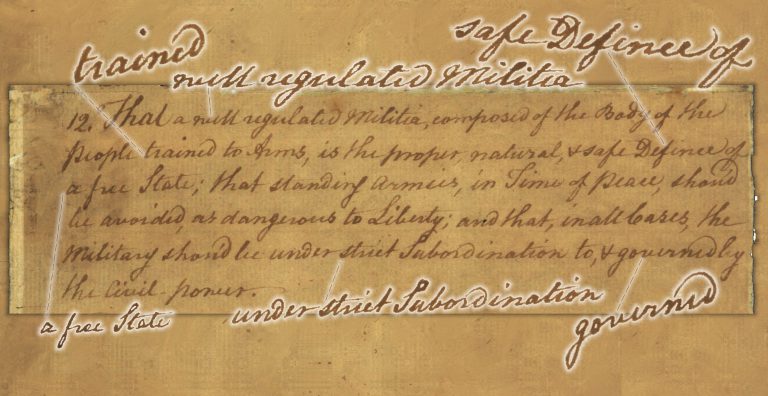 trained
safe Defince of
well regulated Militia
12. That a well regulated Militia, composed of the Body of the
People trained to Arms, is the proper, natural, & safe Defince of
a free State; that standing Armies, in Time of Peace, should
be avoided, as dangerous to Liberty; and that, in all Cases, the
Military should be under strict Subordination to, & governed by
the Civil power.
a free State
under strict Subordination
governed